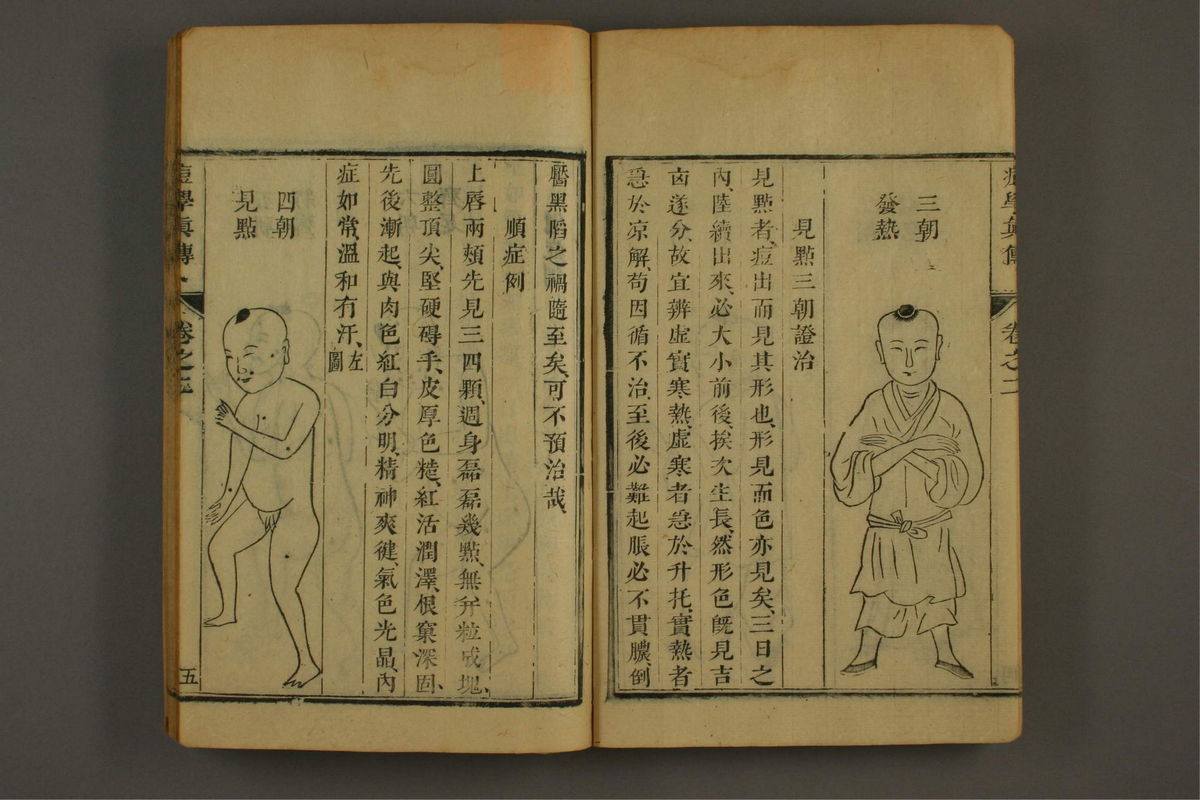 痘學眞傳
卷之二
三朝
發熱
見點三朝證治
見點者、痘出而見其形也、形見而色亦見矣、三日之
內、陸續出來、必大小前後、挨次生長、然形色旣見、吉
凶遂分、故宜辨虛實寒熱、虛寒者急於升托、實熱者
急於凉解、苟因循不治、至後必難起脹、必不貫膿、倒
靨黑陷之禍隨至矣、可不預治哉、
順症例
上唇兩頰先見三四顆、週身磊磊幾點、無弁粒成塊、
圓整頂尖、堅硬碍手、皮厚色糙、紅活潤澤、根窠深固、
先後漸起、與肉色紅白分明、精神爽健、氣色光晶、內
症如常、溫和有汗、左圖
四朝
見點
痘學眞傳
卷之二
五